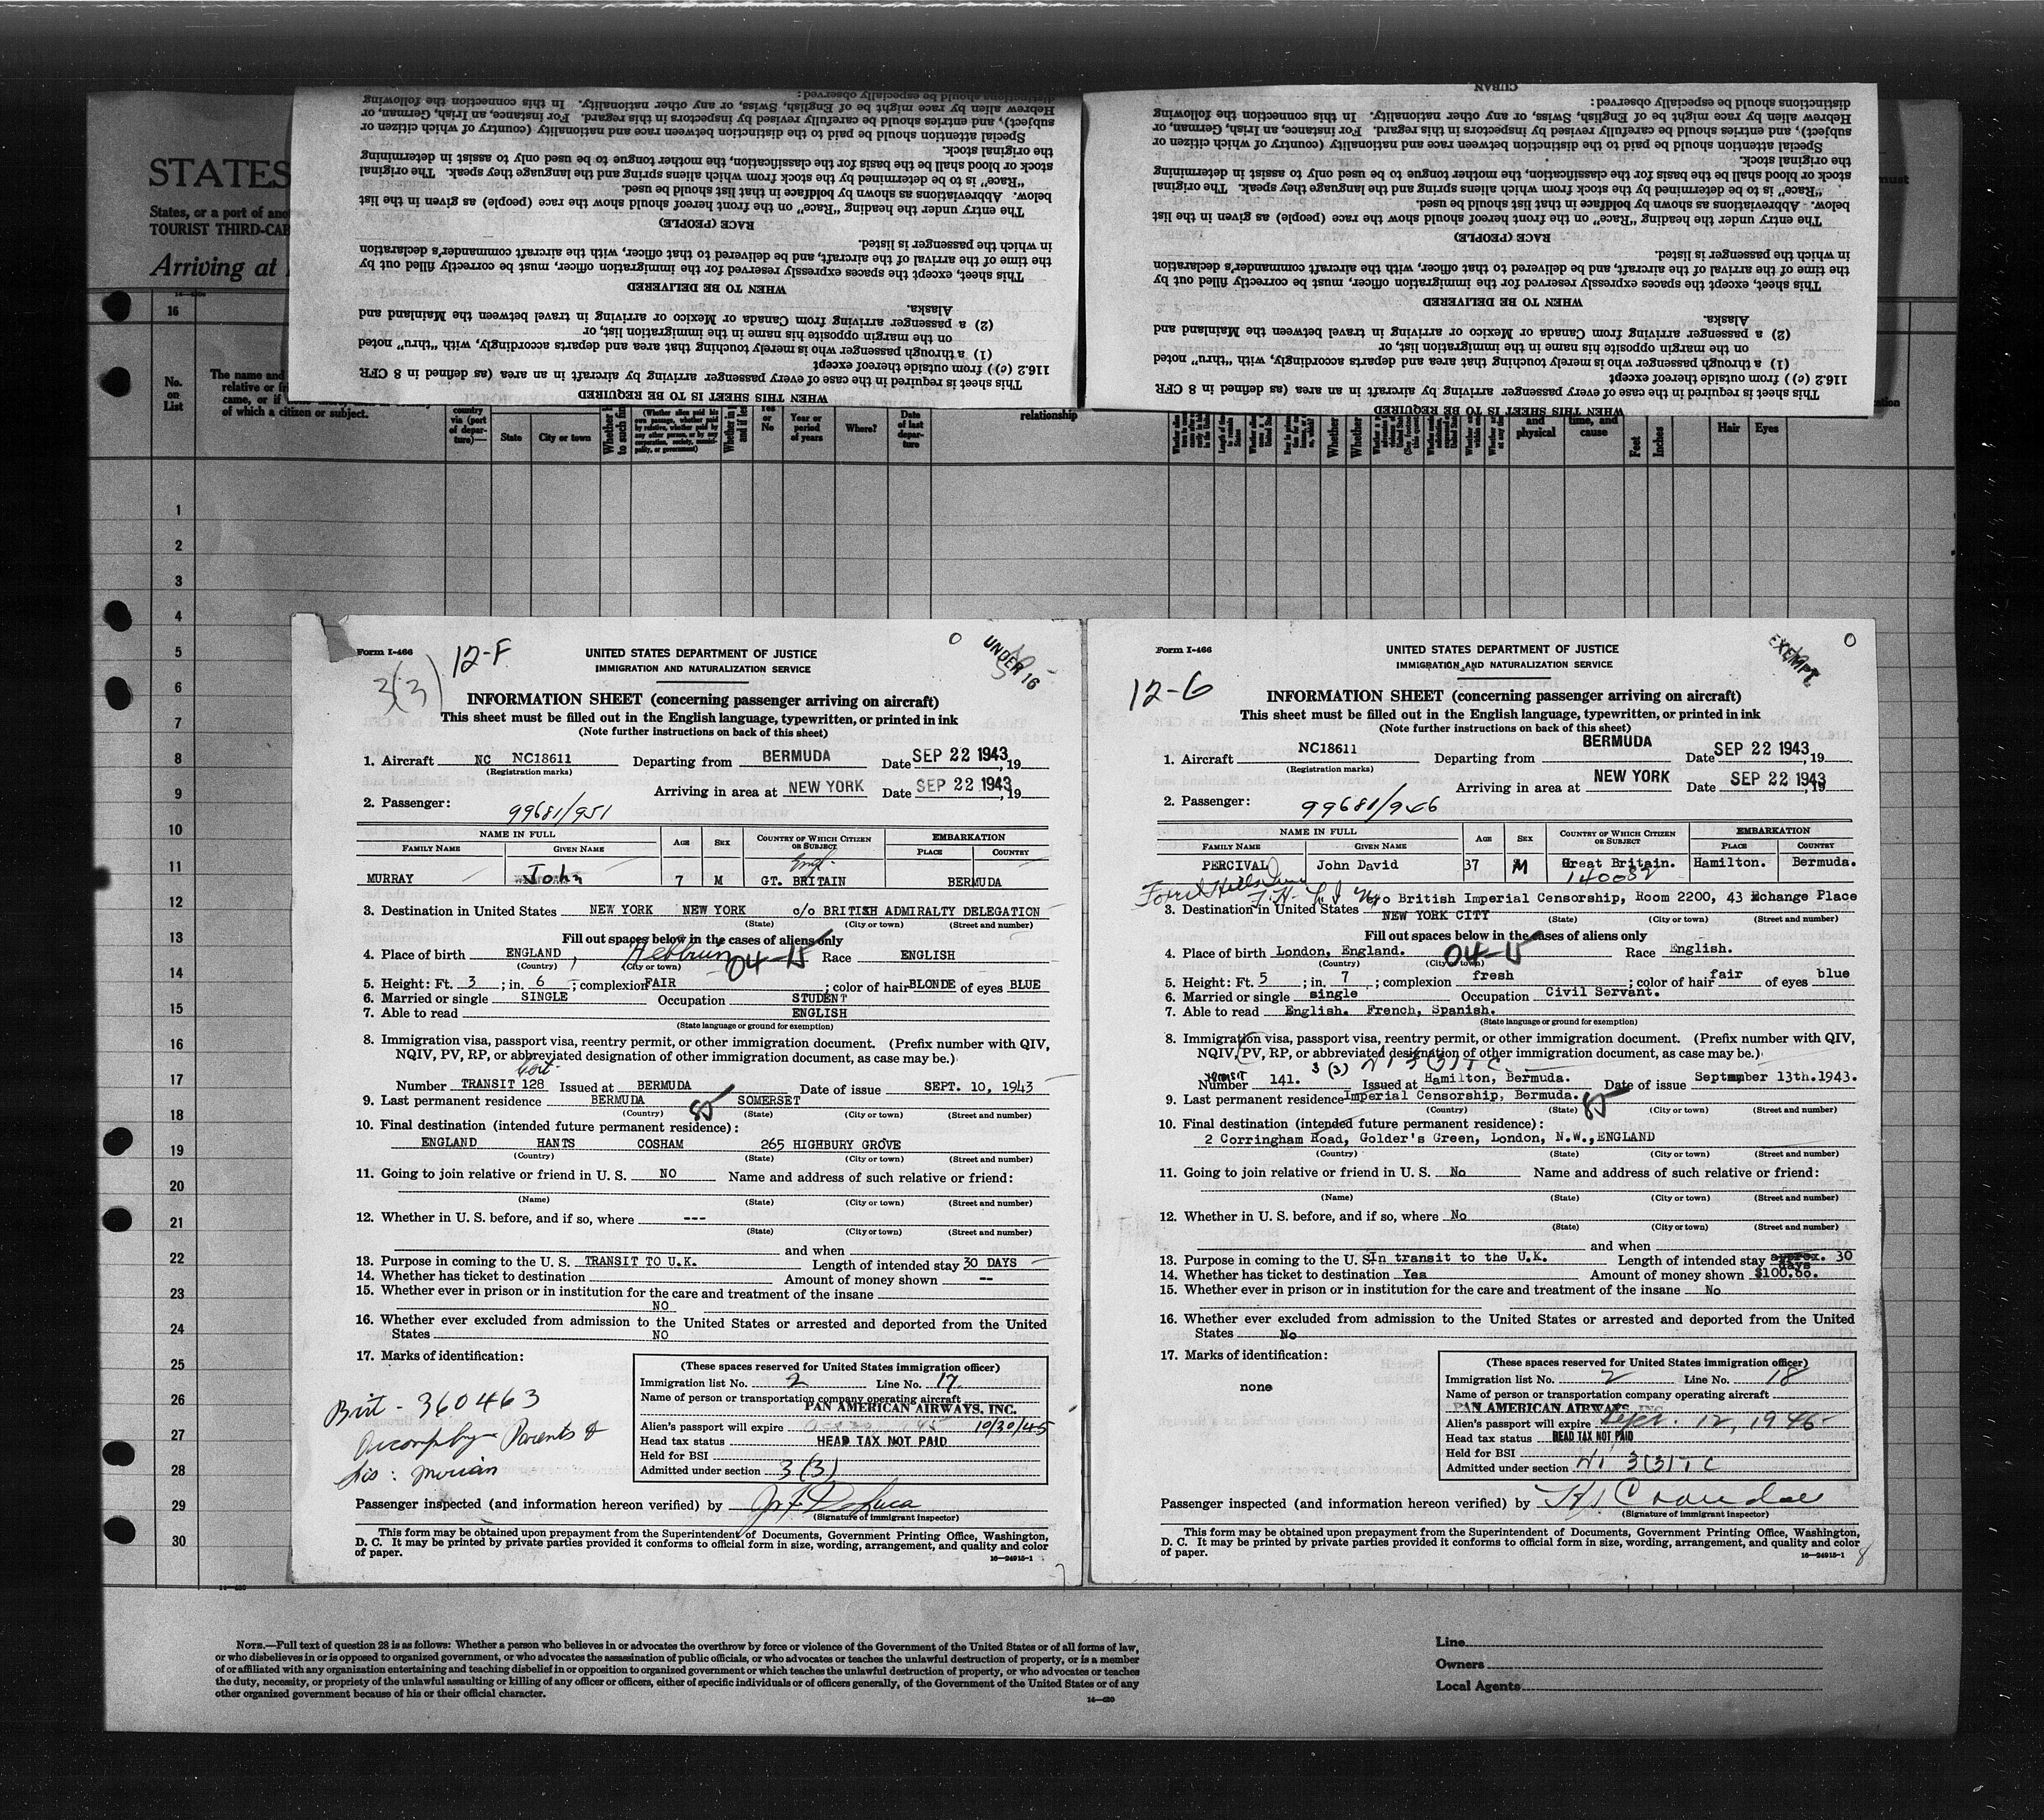 STATES
States, or a port of ano
TOURIST THIRD-CAB
Arriving at
16
No. on List
The name and
relative or fri
came, or if
of which a citizen or subject.
country via (port of departure)—
State
City or town
(Whether alien paid his own passage, whether paid by relative, whether paid by any other person, or by any corporation, society, municipality, or government)
Yes or No
Year or period of years
Where?
Date of last departure
relationship
and physical
time, and cause
Feet
Inches
Hair
Eyes
WHEN THIS SHEET IS TO BE REQUIRED
This sheet is required in the case of every passenger arriving by aircraft in an area (as defined in 8 CFR
116.2 (c) ) from outside thereof except
(1) a through passenger who is merely touching that area and departs accordingly, with "thru" noted
on the margin opposite his name in the immigration list, or
(2) a passenger arriving from Canada or Mexico or arriving in travel between the Mainland and
Alaska.
WHEN TO BE DELIVERED
This sheet, except the spaces expressly reserved for the immigration officer, must be correctly filled out by
the time of the arrival of the aircraft, and be delivered to that officer, with the aircraft commander's declaration
in which the passenger is listed.
RACE (PEOPLE)
The entry under the heading "Race" on the front hereof should show the race (people) as given in the list
below. Abbreviations as shown by boldface in that list should be used.
"Race" is to be determined by the stock from which aliens spring and the language they speak. The original
stock or blood shall be the basis for the classification, the mother tongue to be used only to assist in determining
the original stock.
Special attention should be paid to the distinction between race and nationality (country of which citizen or
subject), and entries should be carefully revised by inspectors in this regard. For instance, an Irish, German, or
Hebrew alien by race might be of English, Swiss, or any other nationality. In this connection the following
distinctions should be especially observed:
WHEN THIS SHEET IS TO BE REQUIRED
This sheet is required in the case of every passenger arriving by aircraft in an area (as defined in 8 CFR
116.2 (c) ) from outside thereof except
(1) a through passenger who is merely touching that area and departs accordingly, with "thru" noted
on the margin opposite his name in the immigration list, or
(2) a passenger arriving from Canada or Mexico or arriving in travel between the Mainland and
Alaska.
WHEN TO BE DELIVERED
This sheet, except the spaces expressly reserved for the immigration officer, must be correctly filled out by
the time of the arrival of the aircraft, and be delivered to that officer, with the aircraft commander's declaration
in which the passenger is listed.
RACE (PEOPLE)
The entry under the heading "Race" on the front hereof should show the race (people) as given in the list
below. Abbreviations as shown by boldface in that list should be used.
"Race" is to be determined by the stock from which aliens spring and the language they speak. The original
stock or blood shall be the basis for the classification, the mother tongue to be used only to assist in determining
the original stock.
Special attention should be paid to the distinction between race and nationality (country of which citizen or
subject), and entries should be carefully revised by inspectors in this regard. For instance, an Irish, German, or
Hebrew alien by race might be of English, Swiss, or any other nationality. In this connection the following
distinctions should be especially observed:
CUBAN
1
2
3
4
5
6
7
8
9
10
11
12
13
14
15
16
17
18
19
20
21
22
23
24
25
26
27
28
29
30
Form I-466
3(3)
12-F
UNITED STATES DEPARTMENT OF JUSTICE
IMMIGRATION AND NATURALIZATION SERVICE
UNDER 16
INFORMATION SHEET (concerning passenger arriving on aircraft)
This sheet must be filled out in the English language, typewritten, or printed in ink
(Note further instructions on back of this sheet)
1. Aircraft NC NC18611 Departing from BERMUDA Date SEP 22 1943, 19
(Registration marks)
Arriving in area at NEW YORK Date SEP 22 1943, 19
2. Passenger: 99681/951
NAME IN FULL AGE SEX COUNTRY OF WHICH CITIZEN OR SUBJECT EMBARKATION
FAMILY NAME GIVEN NAME PLACE COUNTRY
Engl.
MURRAY John 7 M GT. BRITAIN BERMUDA
3. Destination in United States NEW YORK NEW YORK c/o BRITISH ADMIRALTY DELEGATION
(State) (City or town) (Street and number)
Fill out spaces below in the cases of aliens only
4. Place of birth ENGLAND, Hebburn 04-15 Race ENGLISH
(Country) (City or town)
5. Height: Ft. 3; in. 6; complexion FAIR; color of hair BLONDE of eyes BLUE
6. Married or single SINGLE Occupation STUDENT
7. Able to read ENGLISH
(State language or ground for exemption)
8. Immigration visa, passport visa, reentry permit, or other immigration document. (Prefix number with QIV,
NQIV, PV, RP, or abbreviated designation of other immigration document, as case may be.)
Cert.
Number TRANSIT 128 Issued at BERMUDA Date of issue SEPT. 10, 1943
9. Last permanent residence BERMUDA 85 SOMERSET
(Country) (State) (City or town) (Street and number)
10. Final destination (intended future permanent residence):
ENGLAND HANTS COSHAM 265 HIGHBURY GROVE
(Country) (State) (City or town) (Street and number)
11. Going to join relative or friend in U. S. NO Name and address of such relative or friend:
(Name) (State) (City or town) (Street and number)
12. Whether in U. S. before, and if so, where ---
(State) (City or town) (Street and number)
and when
13. Purpose in coming to the U. S. TRANSIT TO U.K. Length of intended stay 30 DAYS
14. Whether has ticket to destination Amount of money shown --
15. Whether ever in prison or in institution for the care and treatment of the insane
NO
16. Whether ever excluded from admission to the United States or arrested and deported from the United
States NO
17. Marks of identification:
Brit - 360463
Accompby Parents &
sis: Marian
(These spaces reserved for United States immigration officer)
Immigration list No. 2 Line No. 17
Name of person or transportation company operating aircraft
PAN AMERICAN AIRWAYS, INC.
Alien's passport will expire 10/30/45
Head tax status HEAD TAX NOT PAID
Held for BSI
Admitted under section 3(3)
Passenger inspected (and information hereon verified) by
(Signature of immigrant inspector)
This form may be obtained upon prepayment from the Superintendent of Documents, Government Printing Office, Washington,
D. C. It may be printed by private parties provided it conforms to official form in size, wording, arrangement, and quality and color
of paper.
16—24915-1
7
Form I-466
12-G
UNITED STATES DEPARTMENT OF JUSTICE
IMMIGRATION AND NATURALIZATION SERVICE
EXEMPT
INFORMATION SHEET (concerning passenger arriving on aircraft)
This sheet must be filled out in the English language, typewritten, or printed in ink
(Note further instructions on back of this sheet)
1. Aircraft NC18611 Departing from BERMUDA Date SEP 22 1943, 19
(Registration marks)
Arriving in area at NEW YORK Date SEP 22 1943, 19
2. Passenger: 99681/946
NAME IN FULL AGE SEX COUNTRY OF WHICH CITIZEN OR SUBJECT EMBARKATION
FAMILY NAME GIVEN NAME PLACE COUNTRY
PERCIVAL John David 37 M Great Britain. Hamilton. Bermuda.
140052
Forest Hills Inn
F.H. L I NY
c/o British Imperial Censorship, Room 2200, 43 Exchange Place
3. Destination in United States NEW YORK CITY
(State) (City or town) (Street and number)
Fill out spaces below in the cases of aliens only
4. Place of birth London, England. 04-15 Race English.
(Country) (City or town)
5. Height: Ft. 5; in. 7; complexion fresh; color of hair fair of eyes blue
6. Married or single single Occupation Civil Servant.
7. Able to read English. French, Spanish.
(State language or ground for exemption)
8. Immigration visa, passport visa, reentry permit, or other immigration document. (Prefix number with QIV,
NQIV, PV, RP, or abbreviated designation of other immigration document, as case may be.)
3(3)
Transit
Number 141. Issued at Hamilton, Bermuda. Date of issue September 13th.1943.
9. Last permanent residence Imperial Censorship, Bermuda. 85
(Country) (State) (City or town) (Street and number)
10. Final destination (intended future permanent residence):
2 Corringham Road, Golder's Green, London, N.W.,ENGLAND
(Country) (State) (City or town) (Street and number)
11. Going to join relative or friend in U. S. No Name and address of such relative or friend:
(Name) (State) (City or town) (Street and number)
12. Whether in U. S. before, and if so, where No
(State) (City or town) (Street and number)
and when
13. Purpose in coming to the U. S. In transit to the U.K. Length of intended stay approx. 30 days
14. Whether has ticket to destination Yes Amount of money shown $100.00.
15. Whether ever in prison or in institution for the care and treatment of the insane No
16. Whether ever excluded from admission to the United States or arrested and deported from the United
States No
17. Marks of identification:
none
(These spaces reserved for United States immigration officer)
Immigration list No. 2 Line No. 18
Name of person or transportation company operating aircraft
PAN AMERICAN AIRWAYS, INC.
Alien's passport will expire Sept. 12, 1945
Head tax status HEAD TAX NOT PAID
Held for BSI
Admitted under section 3(3) TC
Passenger inspected (and information hereon verified) by
(Signature of immigrant inspector)
This form may be obtained upon prepayment from the Superintendent of Documents, Government Printing Office, Washington,
D. C. It may be printed by private parties provided it conforms to official form in size, wording, arrangement, and quality and color
of paper.
16—24915-1
8
NOTE.—Full text of question 28 is as follows: Whether a person who believes in or advocates the overthrow by force or violence of the Government of the United States or of all forms of law,
or who disbelieves in or is opposed to organized government, or who advocates the assassination of public officials, or who advocates or teaches the unlawful destruction of property, or is a member
of or affiliated with any organization entertaining and teaching disbelief in or opposition to organized government or which teaches the unlawful destruction of property, or who advocates or teaches
the duty, necessity, or propriety of the unlawful assaulting or killing of any officer or officers, either of specific individuals or of officers generally, of the Government of the United States or of any
other organized government because of his or their official character.
14—420
Line
Owners
Local Agents